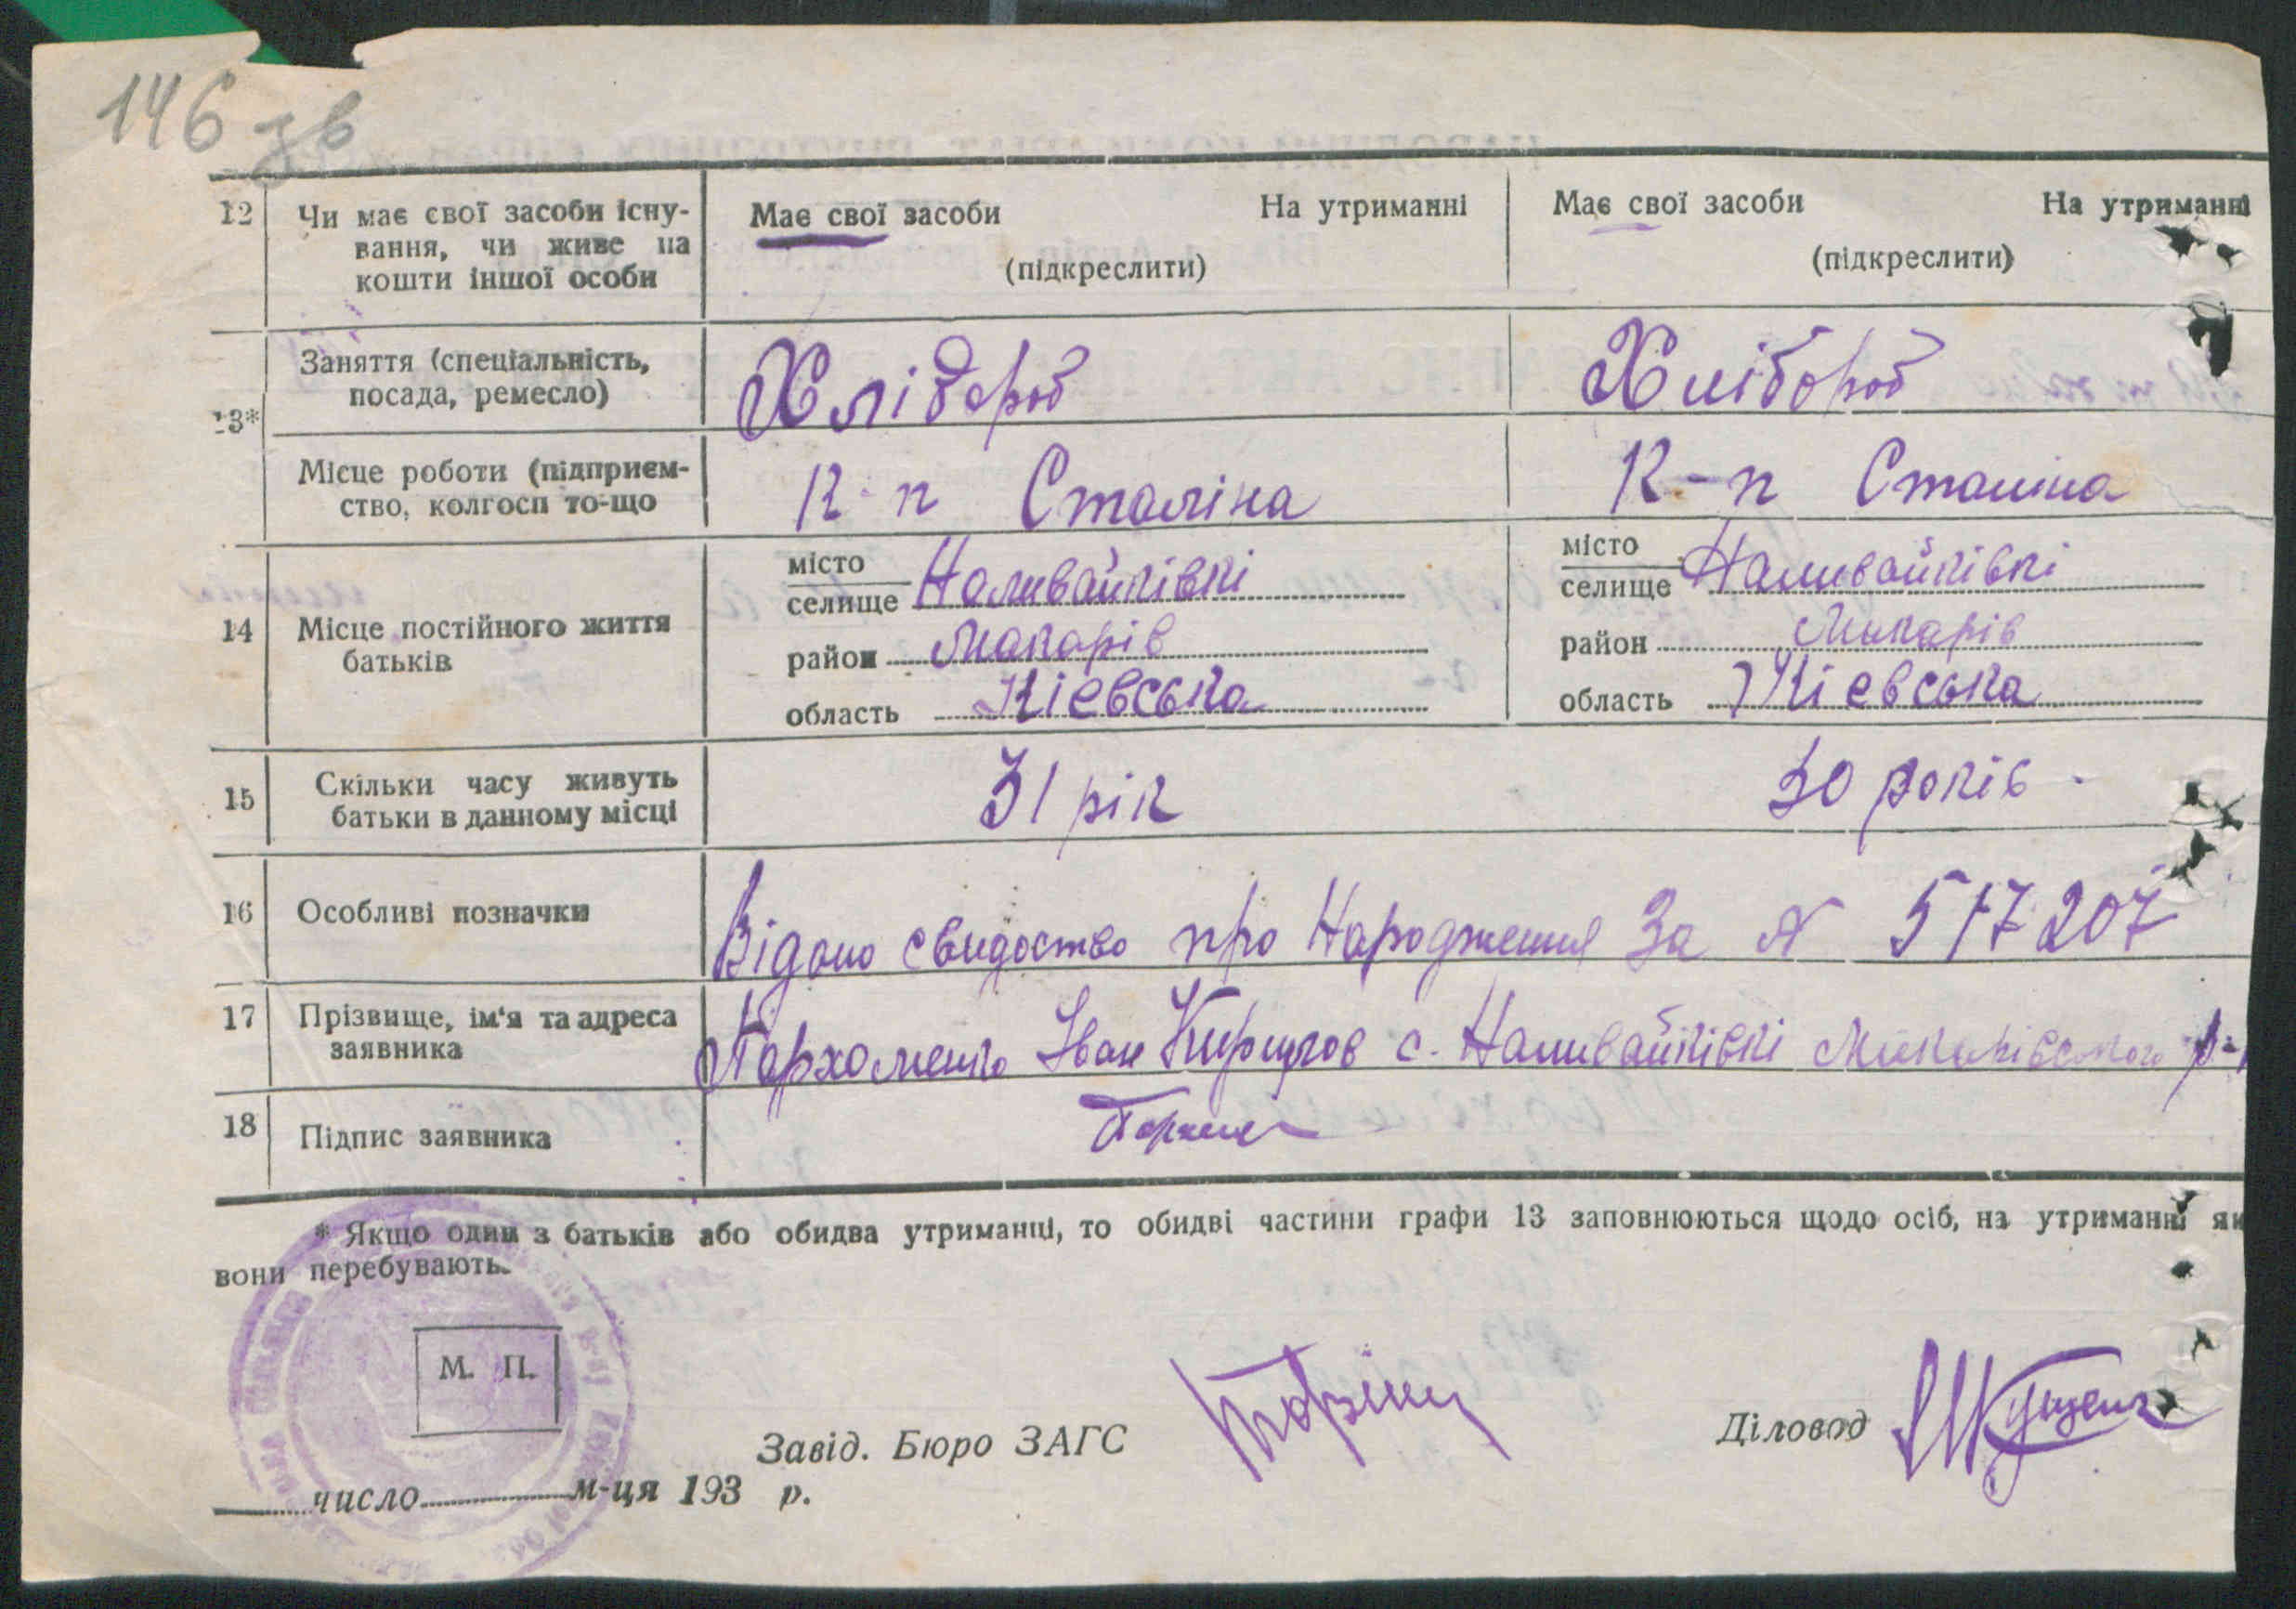 146 зв
12 Чи має свої засоби існу- Має свої засоби На утриманні Має свої засоби На утриманні
вання, чи живе на (підкреслити) (підкреслити)
кошти іншої особи
13* Заняття (спеціальність, Хлібороб Хлібороб
посада, ремесло)
Місце роботи (підприєм- К-п Сталіна К-п Сталіна
ство, колгосп то-що
14 Місце постійного життя
батьків
місто
селище Наливайківкі
район Макарів
область Кієвська
місто
селище Наливайківкі
район Макарів
область Кієвська
15 Скільки часу живуть 31 рік 30 років
батьки в данному місці
16 Особливі позначки Відано свидоство про Народження За № 517207
17 Прізвище, ім'я та адреса Пархоменко Іван с. Наливайківкі Макарівського р-
заявника
18 Підпис заявника
* Якщо один з батьків або обидва утриманці, то обидві частини графи 13 заповнюються щодо осіб, на утриманні як
вони перебувають.
М. П.
Завід. Бюро ЗАГС
Діловод
число м-ця 193 р.